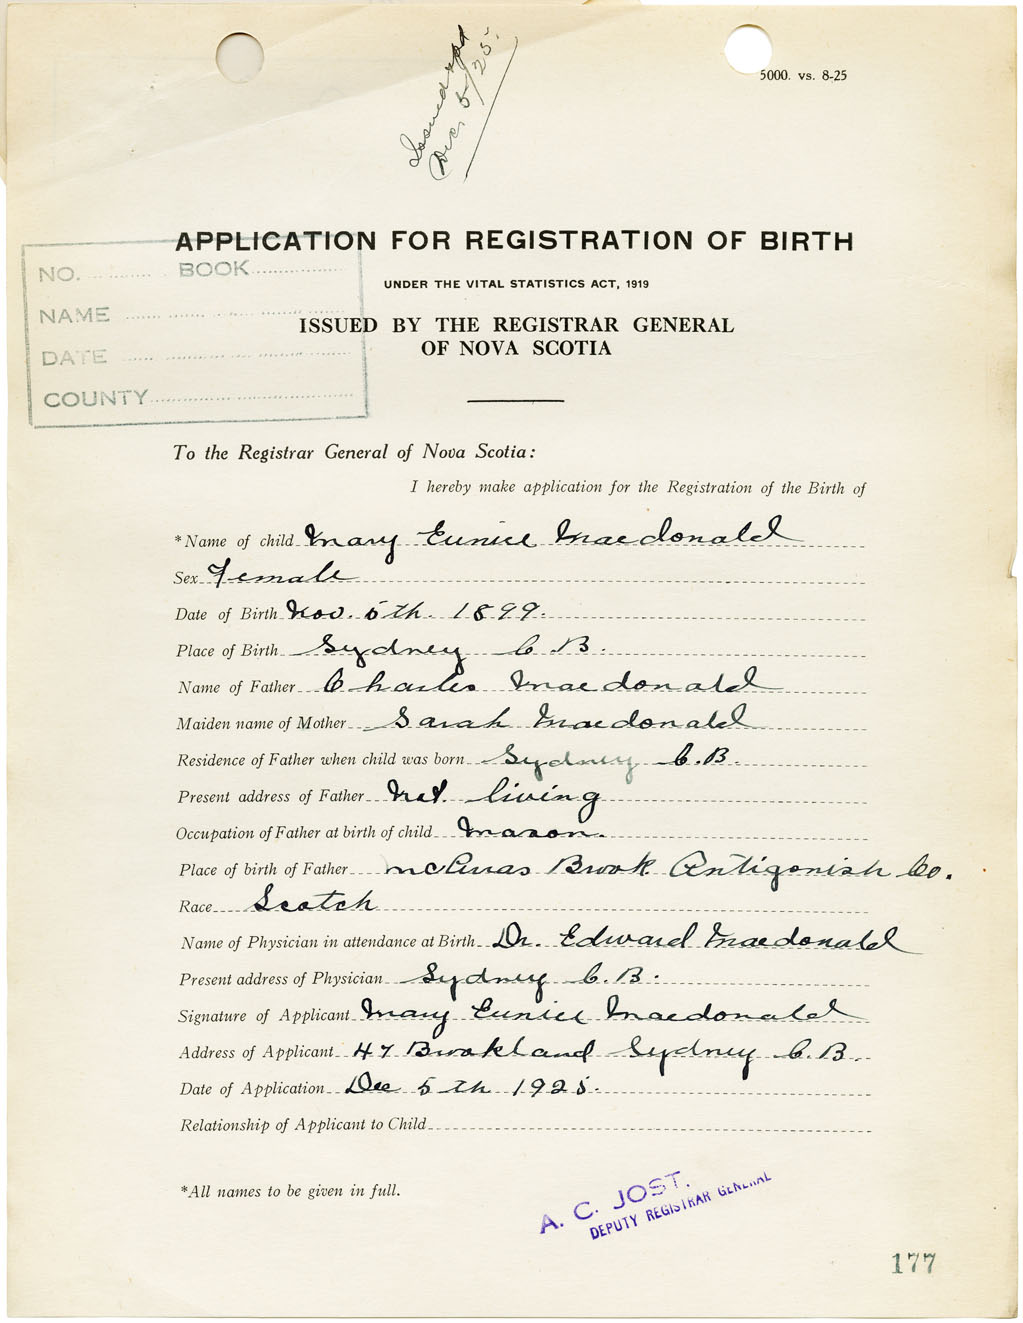 Issued
Dec. 5/25.
5000. vs. 8-25
APPLICATION FOR REGISTRATION OF BIRTH
UNDER THE VITAL STATISTICS ACT, 1919
ISSUED BY THE REGISTRAR GENERAL
OF NOVA SCOTIA
NO. BOOK
NAME
DATE
COUNTY
To the Registrar General of Nova Scotia:
I hereby make application for the Registration of the Birth of
*Name of child Mary Eunice Macdonald
Sex Female
Date of Birth Nov. 5th. 1899.
Place of Birth Sydney C.B.
Name of Father Charles Macdonald
Maiden name of Mother Sarah Macdonald
Residence of Father when child was born Sydney C.B.
Present address of Father Not. living
Occupation of Father at birth of child Mason.
Place of birth of Father Brook Antigonish Co.
Race Scotch
Name of Physician in attendance at Birth Dr. Edward Macdonald
Present address of Physician Sydney C.B.
Signature of Applicant Mary Eunice Macdonald
Address of Applicant 47 Brookland Sydney C.B.
Date of Application Dec 5th 1925.
Relationship of Applicant to Child
*All names to be given in full.
A. C. JOST.
DEPUTY REGISTRAR GENERAL
177